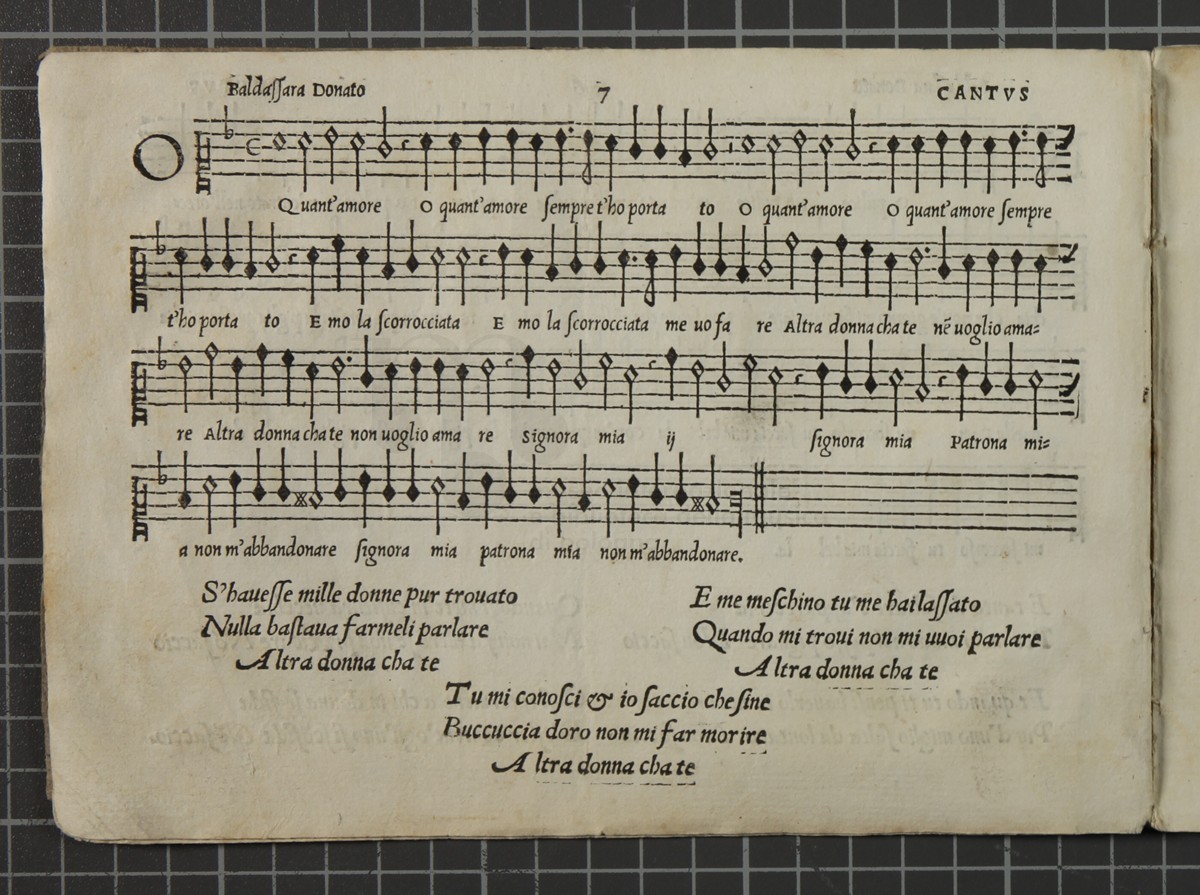 Baldaſſara Donato 7 CANTVS
O Quant'amore O quant'amore ſempre t'ho porta to O quant'amore O quant'amore ſempre
t'ho porta to E mo la ſcorrocciata E mo la ſcorrocciata me uo fa re Altra donna cha te nē uoglio ama=
re Altra donna cha te non uoglio ama re Signora mia ij ſignora mia Patrona mi=
a non m'abbandonare ſignora mia patrona mia non m'abbandonare.
S'haueſſe mille donne pur trouato
Nulla baſtaua farmeli parlare
Altra donna cha te
E me meſchino tu me hai laſſato
Quando mi troui non mi uuoi parlare
Altra donna cha te
Tu mi conoſci & io ſaccio che ſine
Buccuccia doro non mi far morire
Altra donna cha te